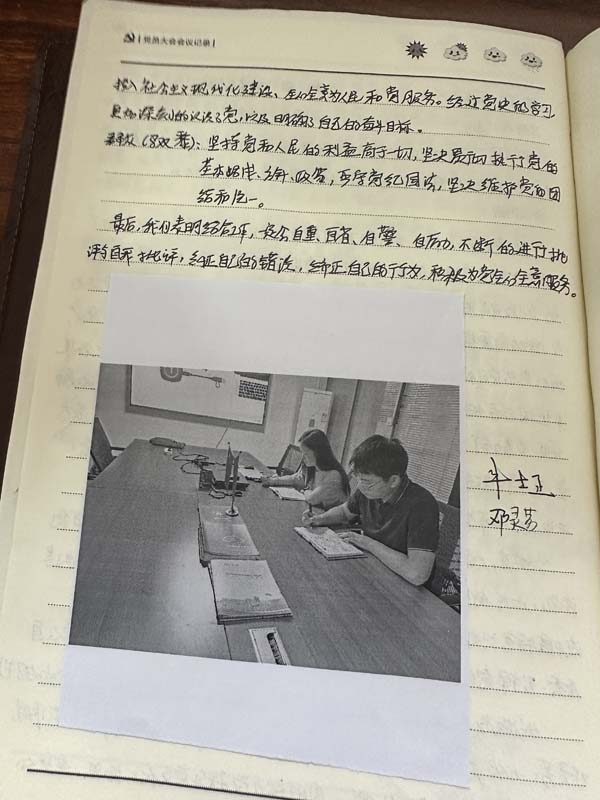 党员大会会议记录
投入社会主义现代化建设、全心全意为人民和党服务。经过党史的学习
更加深刻的认识了党,以及明确了自己的奋斗目标。
坚持党和人民的利益高于一切,坚决贯彻执行党的
基本路线、方针、政策,严守党纪国法,坚决维护党的团
结和统一。
最后,我们表明结合工作,按公自重、自省、自警、自励,不断的进行批
评与自我批评,纠正自己的错误,矫正自己的行为,积极为党全心全意服务。